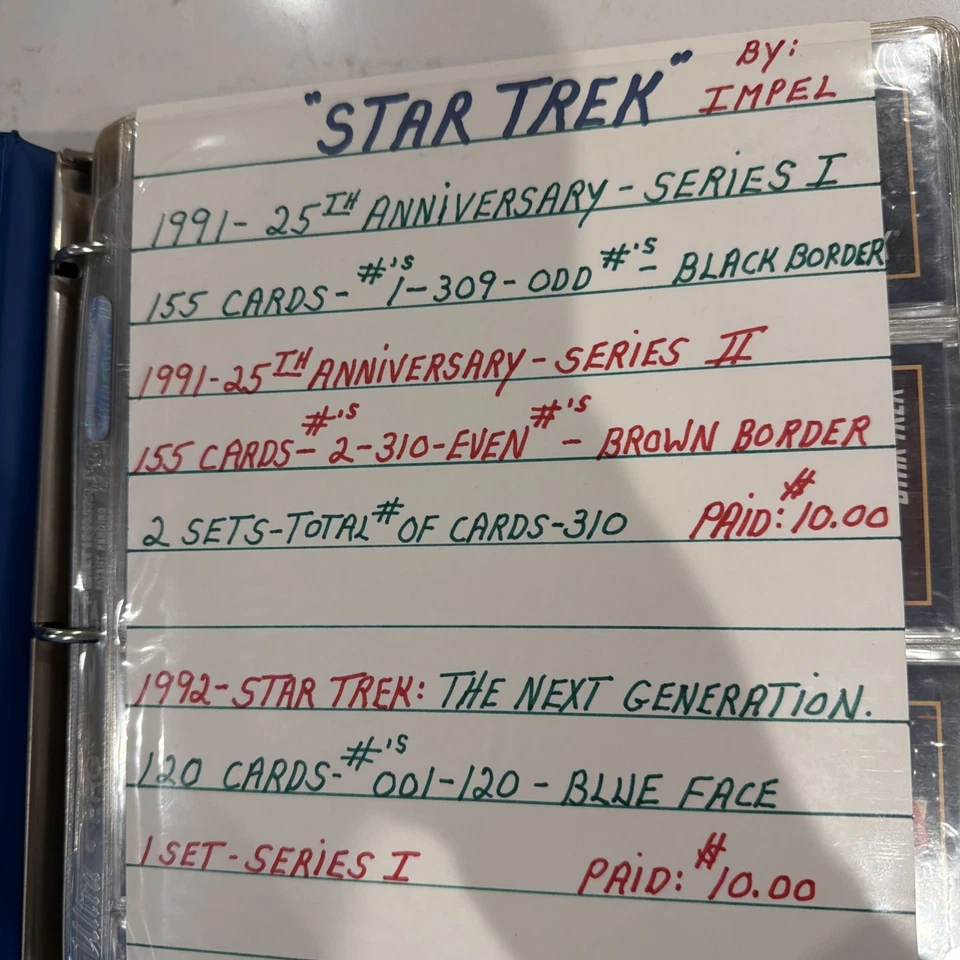 "STAR TREK" BY: IMPEL
1991-25TH ANNIVERSARY-SERIES I
155 CARDS-#'S 1-309-ODD #'S- BLACK BORDER
1991-25TH ANNIVERSARY-SERIES II
155 CARDS-#'S 2-310-EVEN #'S- BROWN BORDER
2 SETS-TOTAL # OF CARDS-310 PAID: $10.00
1992-STAR TREK: THE NEXT GENERATION.
120 CARDS-#'S 001-120-BLUE FACE
1 SET-SERIES I PAID: $10.00
Ultra
STAR TREK